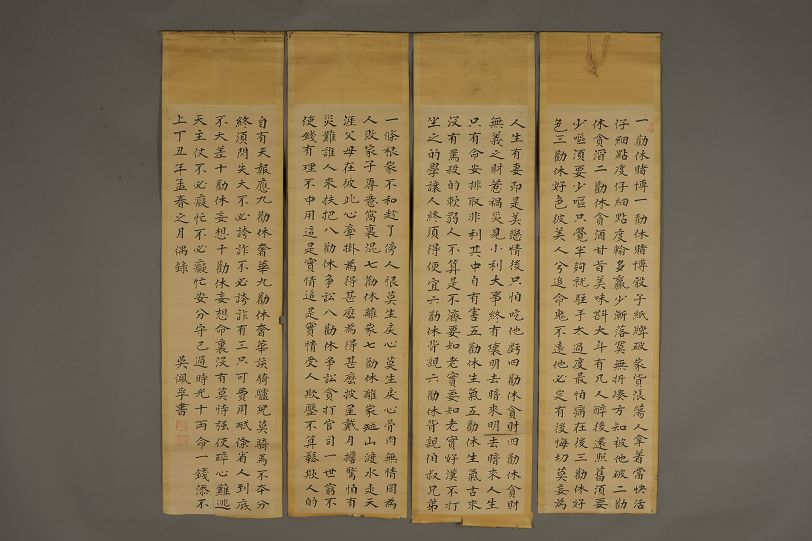 一勸休賭博一勸休賭博骰子紙牌破家貲浪蕩人拿着當快活
仔細點度仔細點度輸多贏少漸落寞無折湊方知被他破二勸
休貪酒二勸休貪酒甘旨美味斟大斗有凡人醉後還照舊須要
少嘔須要少嘔只覺半夠就駐手太過度最怕病在後三勸休好
色三勸休好色彼美人兮追命鬼不遠他必定有後悔切莫妄為
人生有妻而是美戀情後只怕吃他虧四勸休貪財四勸休貪財
無義之財惹禍災見小利大事終有壞明去暗來明去暗來人生
只有命安排取非利其中自有害五勸休生氣五勸休生氣古來
沒有罵殺的軟弱人不算是不濟要知老實要知老實好漢不打
坐之的學讓人終須得便宜六勸休背親六勸休背親怕叔兄弟
一條根家不和趁了傍人恨莫生戾心莫生戾心骨肉無情因為
人敗家子專意窩裏混七勸休離家七勸休離家盤山渡水走天
涯父母在彼此心牽掛為得甚麼為得甚麼披星戴月擔驚怕有
災難誰人來扶把八勸休爭訟八勸休爭訟貪打官司一世窮不
使錢有理不中用這是實情這是實情受人欺壓不算鬆欺人的
自有天報應九勸休奢華九勸休奢華誤騎驢兒莫騎馬不夲分
終須閃失大不必誇詐不必誇詐有三只可費用賦徐省人到底
不大差十勸休妄想十勸休妄想命裏沒有莫恃强使碎心難逃
天主仗不必癡忙不必癡忙安分守己過時光十両命一錢添不
上丁丑年孟春之月偶錄
吳佩孚書